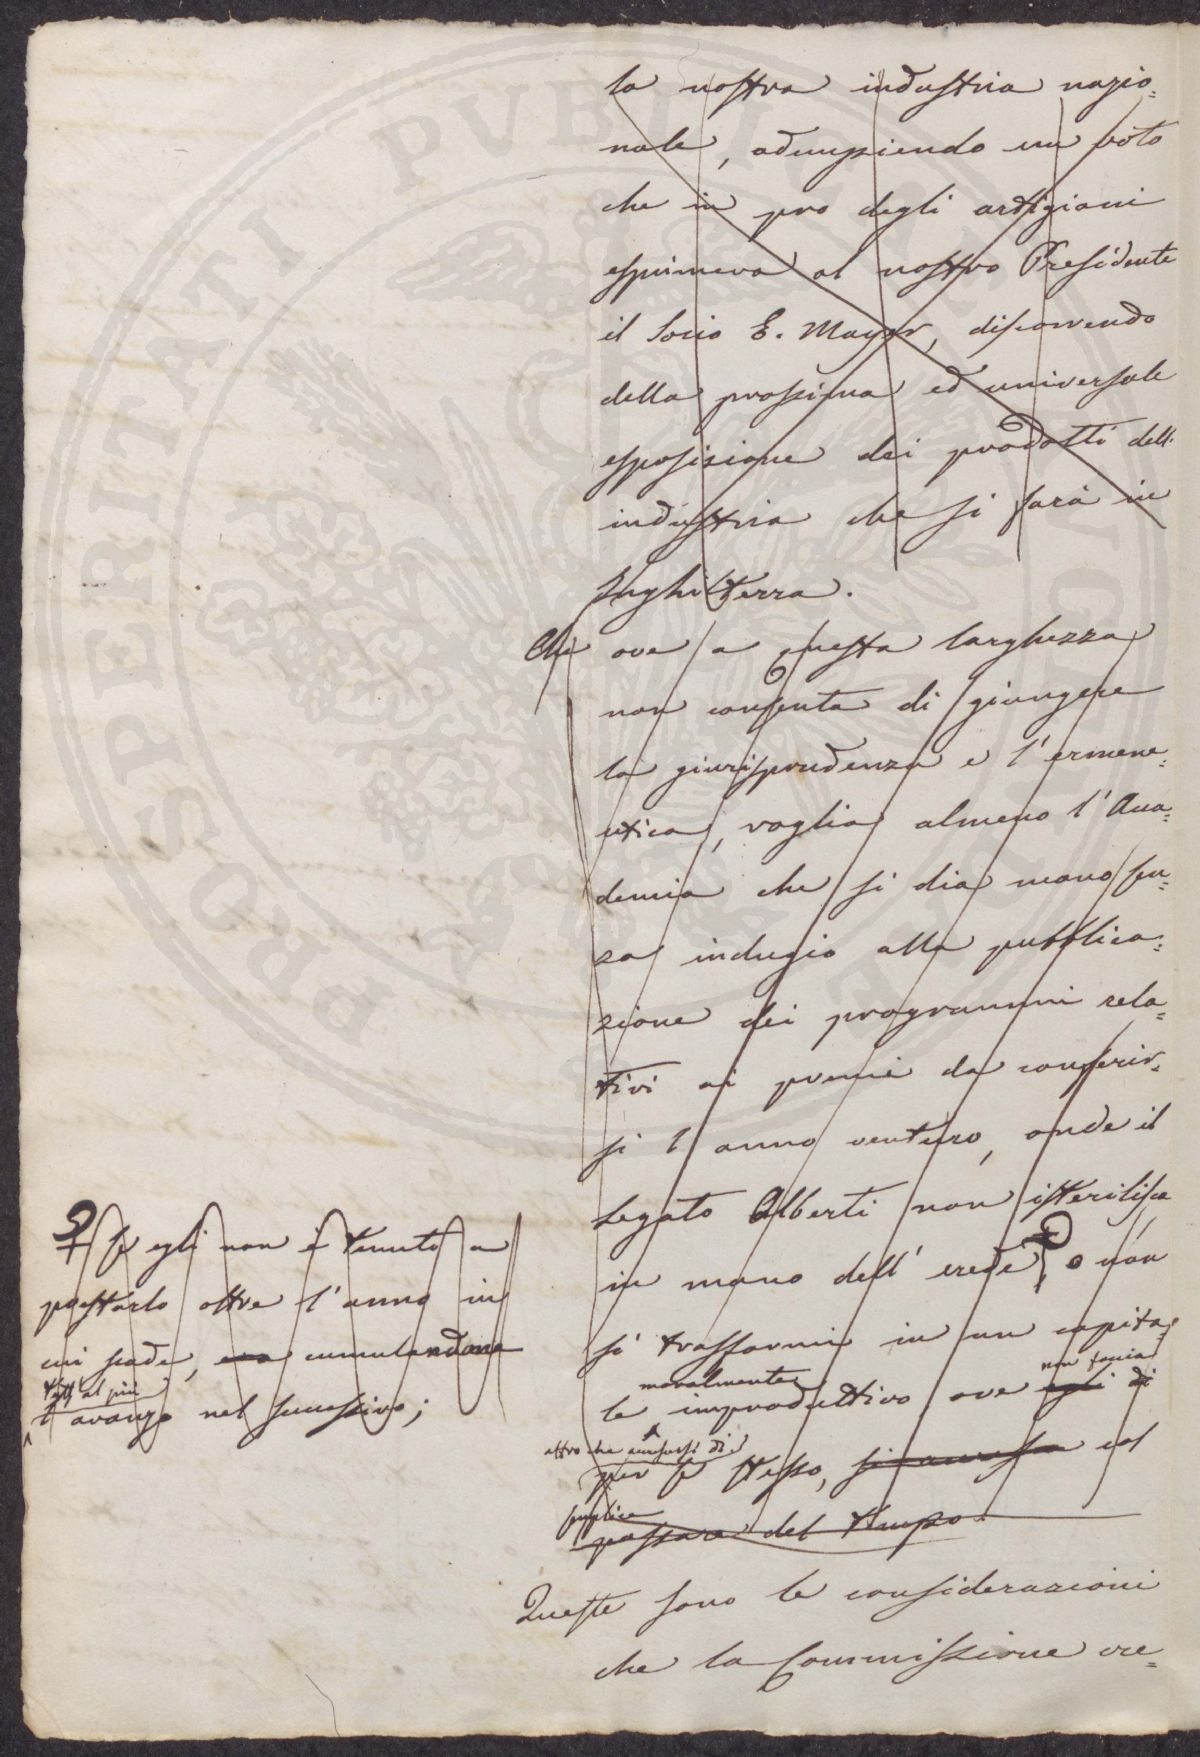 la nostra industria nazio=
nale, adempiendo un voto
che in pro degli artigiani
esprimeva al nostro Presidente
il Socio E. Mayer, discorrendo
della prossima ed universale
esposizione dei prodotti dell'
industria che si farà in
Inghilterra.
Che ove a questa larghezza
non consenta di giungere
la giurisprudenza e l'ermene=
utica, voglia almeno l'Acca=
demia che si dia mano sen=
za indugio alla pubblica=
zione dei programmi rela=
tivi ai premi da conferir=
si l'anno venturo, onde il
Legato Alberti non isterilisca
in mano dell'erede, o non
si trasformi in un capita=
le moralmente improduttivo ove egli di non faccia
altro che di
per se stesso, col
semplice
passare del tempo.
Queste sono le considerazioni
che la Commissione cre=
se egli non è tenuto a
prestarlo oltre l'anno in
cui scade, cumulandone
tutt'al più
l'avanzo nel successivo;
PROSPERITATI PUBLICAE